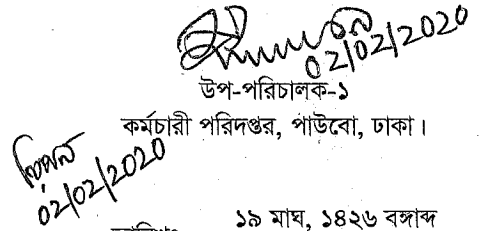 02/02/2020
উপ-পরিচালক-১
কর্মচারী পরিদপ্তর, পাউবো, ঢাকা।
02/02/2020
১৯ মাঘ, ১৪২৬ বঙ্গাব্দ